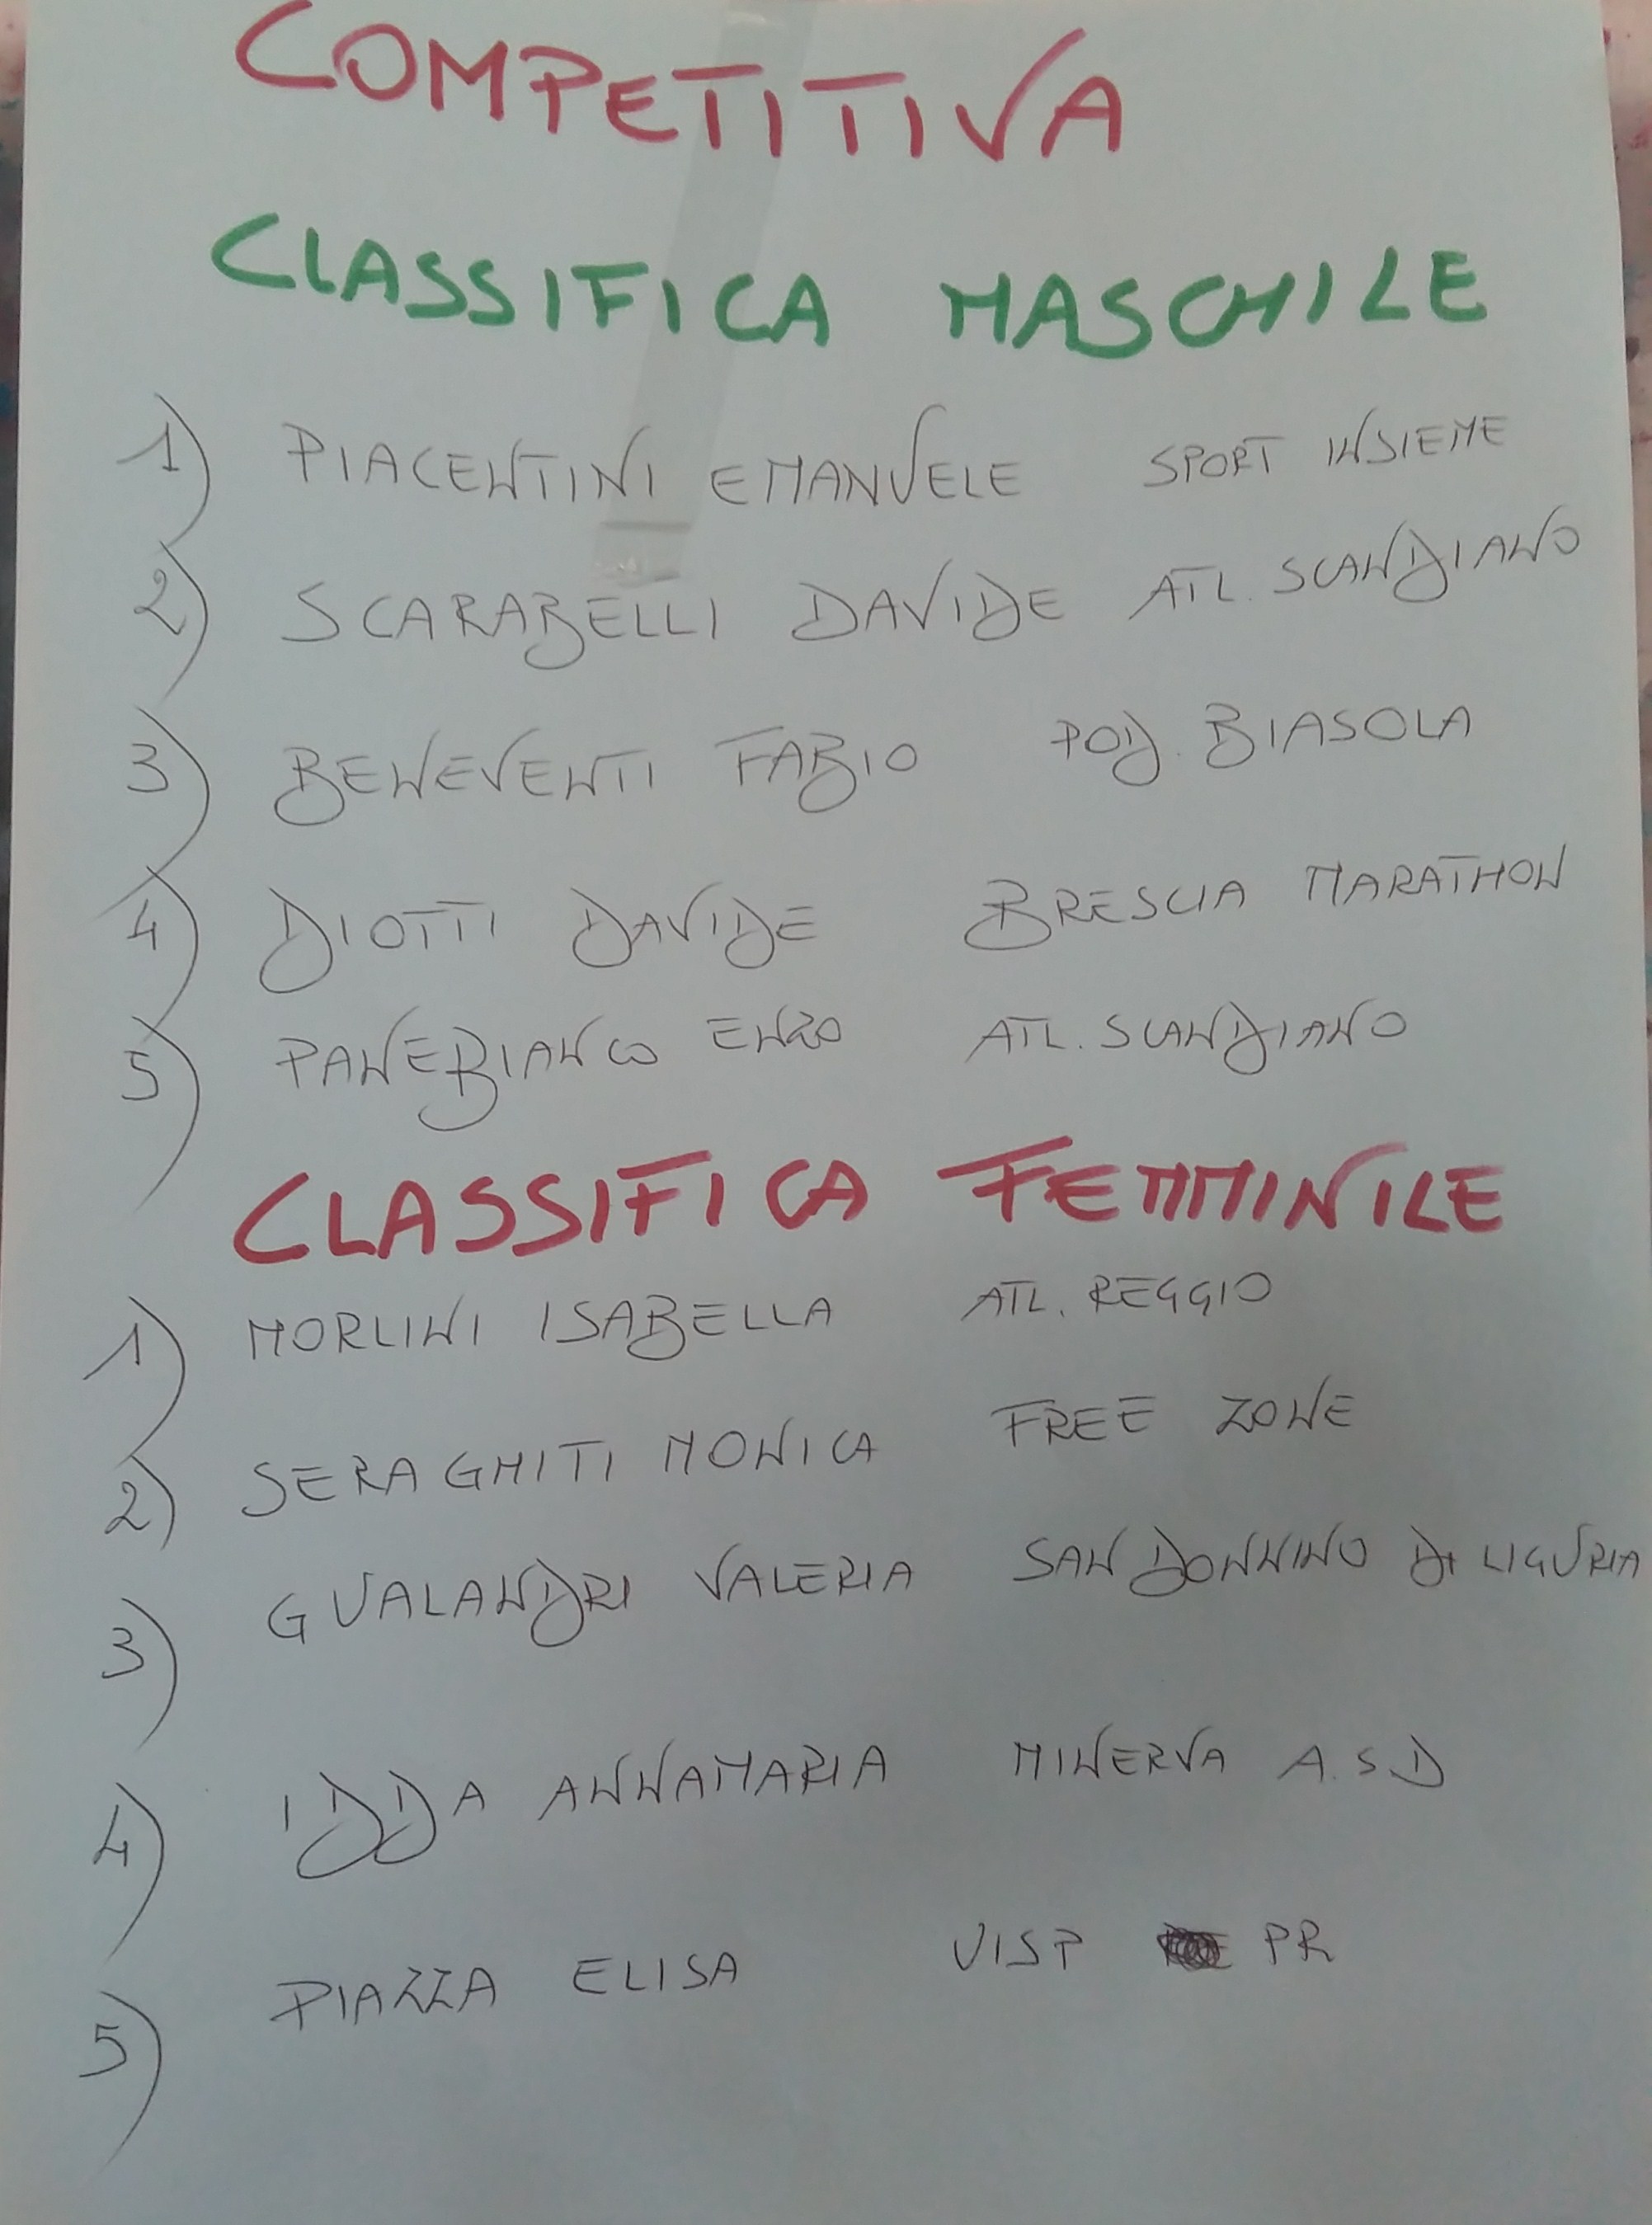 COMPETITIVA
CLASSIFICA MASCHILE
1) PIACENTINI EMANUELE SPORT INSIEME
2) SCARABELLI DAVIDE ATL. SCANDIANO
3) BENEVENTI FABIO POD. BIASOLA
4) DIOTTI DAVIDE BRESCIA MARATHON
5) PANEBIANCO ENZO ATL. SCANDIANO
CLASSIFICA FEMMINILE
1) MORLINI ISABELLA ATL. REGGIO
2) SERAGHITI MONICA FREE ZONE
3) GUALANDRI VALERIA SAN DONNINO DI LIGURIA
4) IDDA ANNAMARIA MINERVA A.S.D
5) PIAZZA ELISA UISP PR